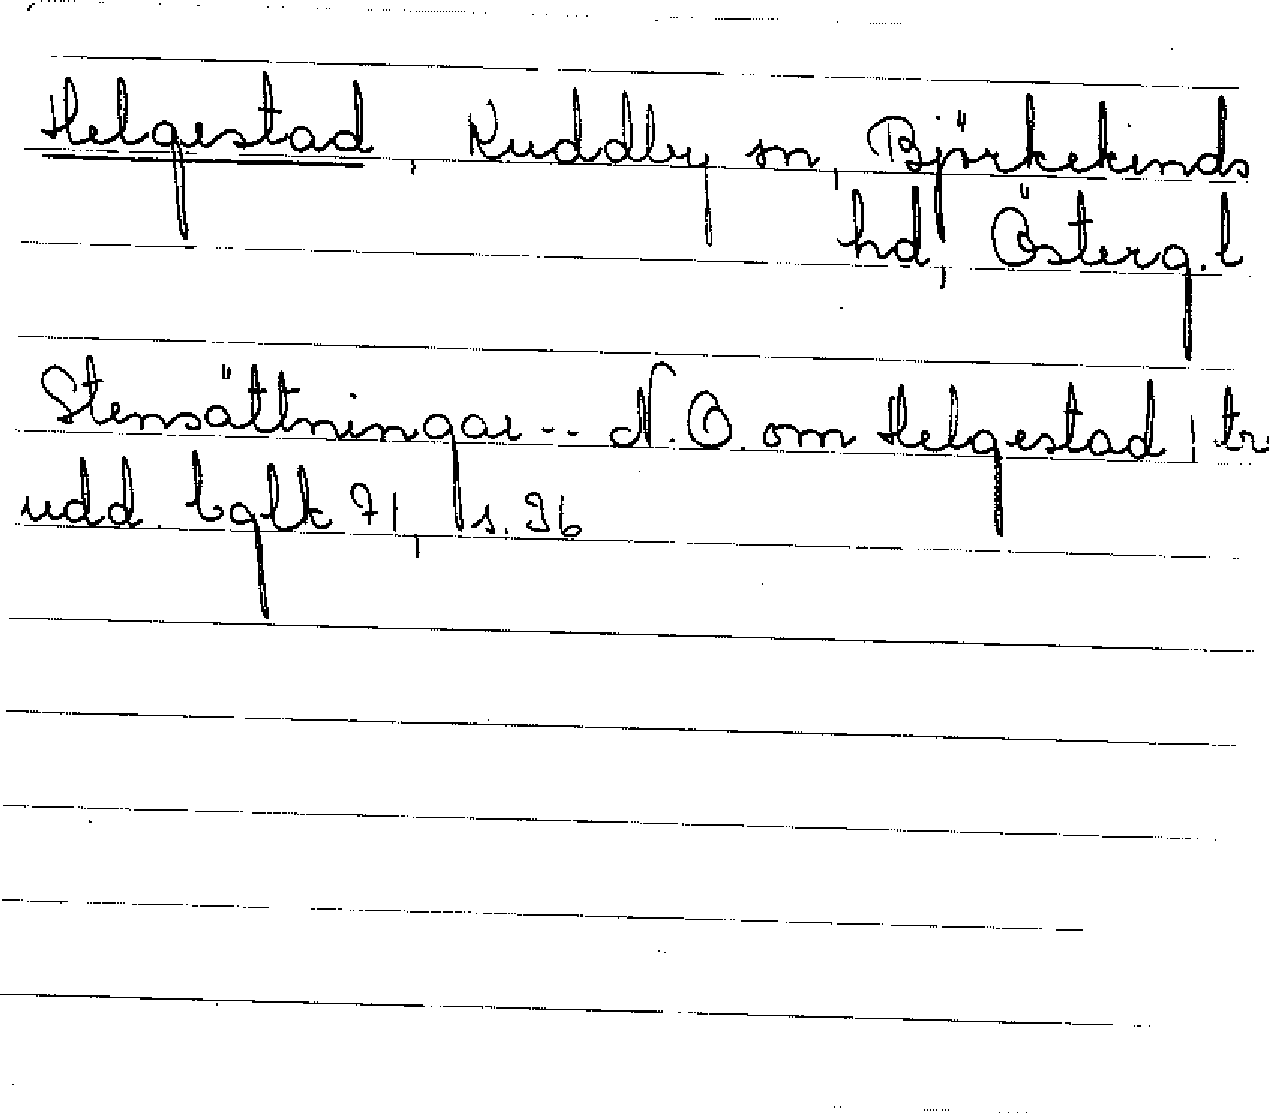 Helgestad, Kuddby sn, Björkekinds
hd, Österg. l
Stensättningar -- N.O. om Helgestad | tr
udd. bglk 71, s. 36